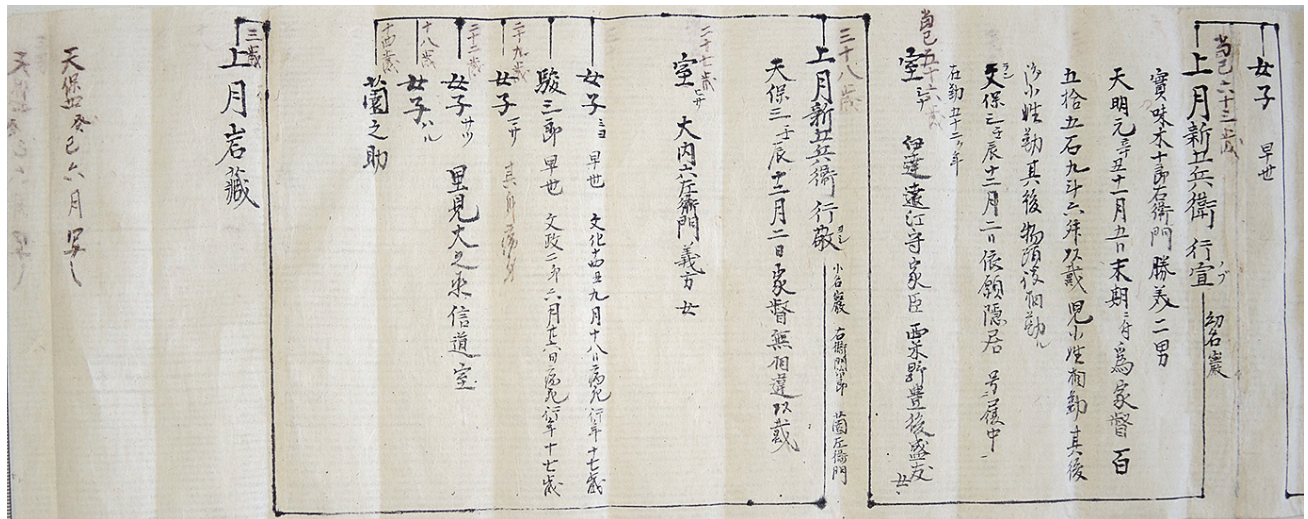 女子 早世
当巳六十三歳
上月新五兵衛 行宣 ノブ 幼名巖
實味木十郎右衛門勝美二男
天明元辛丑十一月五日末期ニ付為家督百
五拾五石九斗六升頂戴児小性相勤其後
小性勤其後物頭役相勤ル
天保三壬辰十二月二日依願隠居 号
右勤五十二ヶ年
当巳五十六歳
室 伊達遠江守家臣 粟野豊後盛友女
三十八歳
上月新五兵衛 行敬 小名巖 右衛門治郎 薗左衛門
天保三壬辰十二月二日家督無相違頂戴
二十七歳
室 大内六左衛門義方女
女子 早世 文化十四丑九月十八日病死行年十七歳
駿三郎 早世 文政二卯六月廿六日病死行年十七歳
二十九歳
女子
二十二歳
女子 サツ 里見大之丞信道室
十八歳
女子 ハル
十四歳
薗之助
三歳
上月岩藏
天保四癸巳六月 写